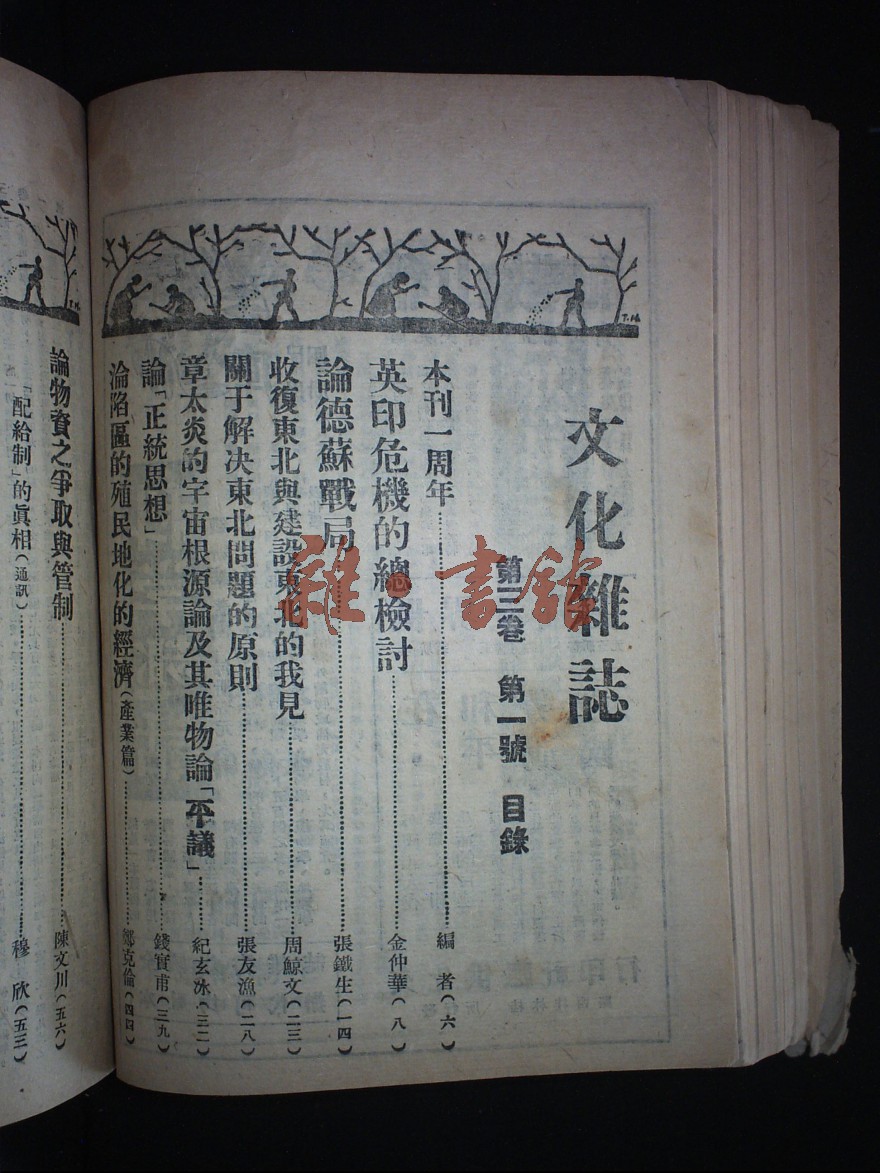 文化雜誌
第三卷 第一號 目錄
本刊一周年……編者(六)
英印危機的總檢討……金仲華(八)
論德蘇戰局……張鐵生(一四)
收復東北與建設東北的我見……周鯨文(二三)
關于解决東北問題的原則……張友漁(二八)
章太炎的宇宙根源論及其唯物論「平議」……紀玄冰(三二)
論「正統思想」……錢實甫(三九)
淪陷區的殖民地化的經濟(產業篇)……鄭克倫(四四)
論物資之爭取與管制……陳文川(五六)
「配給制」的眞相(通訊)……穆欣(五三)
雜·書館